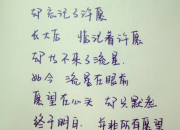 却忘记了许愿
长大后 惦记着许愿
却遇不来了流星
如今 流星在眼前
愿望在心头 却只默念
终于明白 并非所有愿望